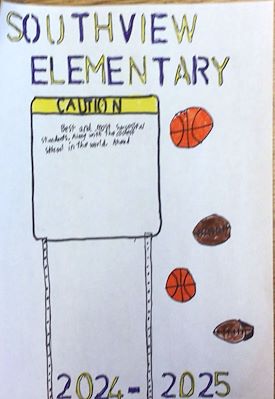 SOUTHVIEW
ELEMENTARY
CAUTION
Best and most successful
students, along with the coolest
school in the world. Ahead
2024- 2025